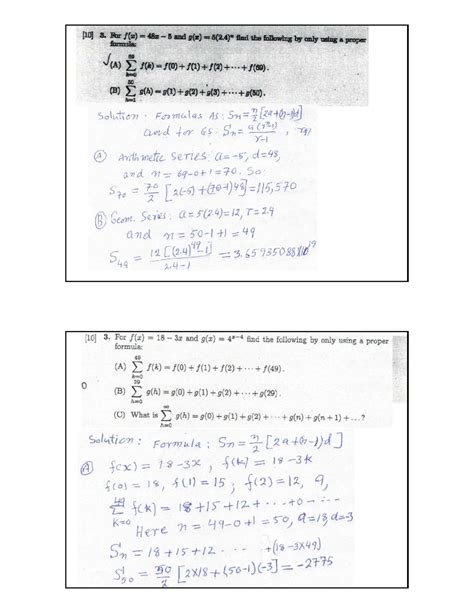 [10] 3. For f(x) = 48x − 5 and g(x) = 5(2.4)ˣ find the following by only using a proper
formula:
√(A) Σ_{k=0}^{69} f(k) = f(0) + f(1) + f(2) + ··· + f(69).
(B) Σ_{h=1}^{50} g(h) = g(1) + g(2) + g(3) + ··· + g(50).
Solution: Formulas AS: Sn = n/2 [2a+(n-1)d]
and for GS: Sn = a(rⁿ-1)/r-1,
(A) Arithmetic Series: a=-5, d=48,
and n = 69-0+1=70. So:
S70 = 70/2 [2(-5)+(70-1)48] = 115,570
(B) Geom. Series: a=5(2.4)=12, r=2.4
and n = 50-1+1 = 49
S49 = 12[(2.4)⁴⁹-1]/2.4-1 = 3.659350881x10¹⁹
[10] 3. For f(x) = 18 − 3x and g(x) = 4ˣ⁻⁴ find the following by only using a proper
formula:
(A) Σ_{k=0}^{49} f(k) = f(0) + f(1) + f(2) + ··· + f(49).
(B) Σ_{h=0}^{29} g(h) = g(0) + g(1) + g(2) + ··· + g(29).
(C) What is Σ_{h=0}^{∞} g(h) = g(0) + g(1) + g(2) + ··· + g(n) + g(n + 1) + ...?
Solution: Formula: Sn = n/2 [2a+(n-1)d]
(A) f(x) = 18-3x, f(k) = 18-3k
f(0) = 18, f(1) = 15; f(2) = 12, 9,
Σ_{k=0}^{49} f(k) = 18+15+12+···+0-···
Here n = 49-0+1 = 50, a=18, d=-3
Sn = 18+15+12 ··· +(18-3x49)
S50 = 50/2 [2x18+(50-1)(-3)] = -2775